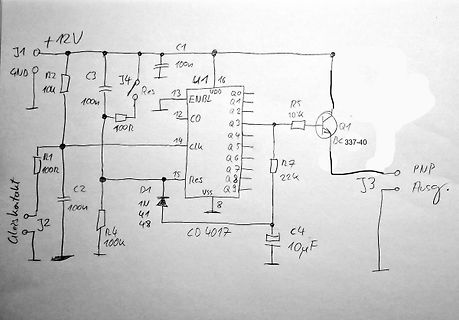 J1
+12V
GND
R2
10k
C3
100n
J4
Res
100R
C1
100n
U1
16
VDD
13
ENBL
12
CO
14
Clk
15
Res
Q0
Q1
Q2
Q3
Q4
Q5
Q6
Q7
Q8
Q9
VSS
8
CD4017
3
R5
10k
Q1
BC 337-40
R7
22k
C4
10µF
R1
100R
C2
100n
Gleiskontakt
J2
R4
100k
D1
1N
41
48
J3
PNP
Ausg.